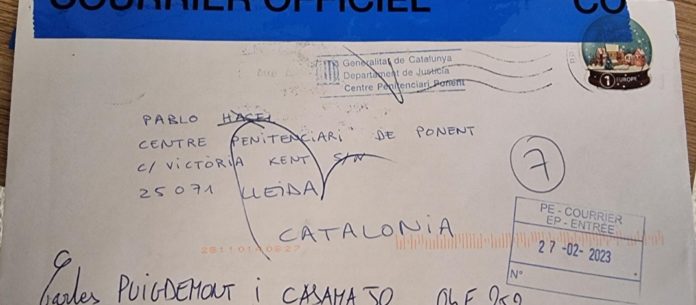 COURRIER OFFICIEL CO
1 EUROPE
Generalitat de Catalunya
Departament de Justícia
Centre Penitenciari Ponent
PABLO HASEL
CENTRE PENITENCIARI DE PONENT
C/ VICTÒRIA KENT S/N
25071 LLEIDA
CATALONIA
7
PE - COURRIER
EP - ENTRÉE
27 -02- 2023
N°
Carles PUIGDEMONT i CASAMAJO